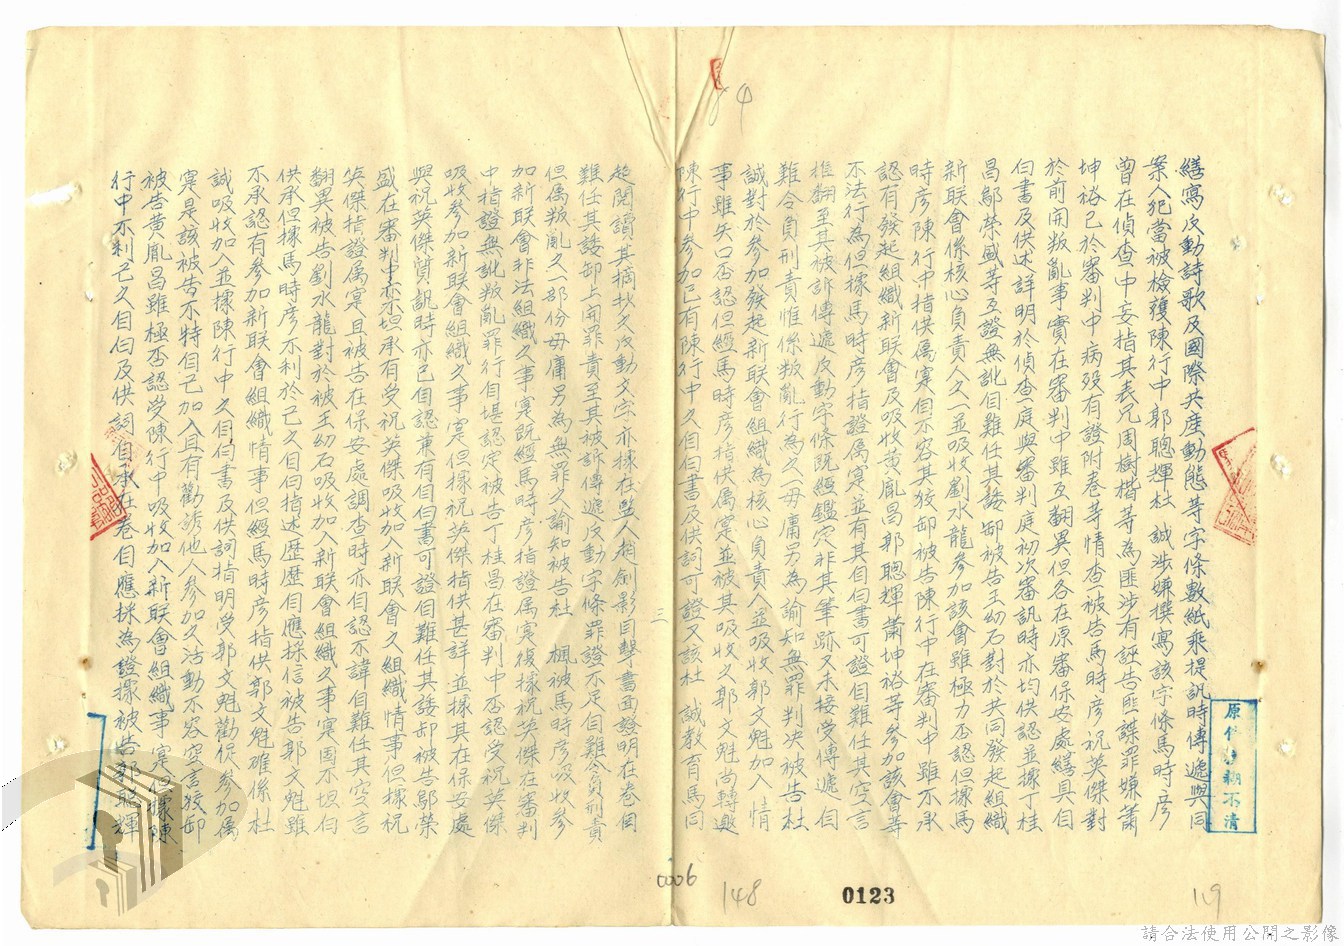 繕寫反動詩歌及國際共產動態等字條數紙乘提訊時傳遞與同
案人犯當被檢獲陳行中郭聰輝杜　誠涉嫌撰寫該字條馬時彥
曾在偵查中妄指其表兄周樹楷等為匪涉有誣告匪諜罪嫌蕭
坤裕已於審判中病歿有證附卷等情查被告馬時彥祝英傑對
於前開叛亂事實在審判中雖互翻異但各在原審保安處繕具自
白書及供述詳明於偵查庭與審判庭初次審訊時亦均供認並據丁桂
昌鄔榮盛等互證無訛自難任其諉卸被告王幼石對於共同發起組織
新联會係核心負責人之一並吸收劉水龍參加該會雖極力否認但據馬
時彥陳行中指供屬寔自不容其狡卸被告陳行中在審判中雖不承
認有發起組織新联會及吸收黃胤昌郭聰輝蕭坤裕等參加該會等
不法行為但據馬時彥指證屬寔並有其自白書可證自難任其空言
推翻至其被訴傳遞反動字條既經鑑定非其筆跡又未接受傳遞自
難令負刑責惟係叛亂行為之一毋庸另為諭知無罪判决被告杜
誠對於參加發起新联會組織為核心負責人並吸收郭文魁加入情
事雖矢口否認但經馬時彥指供屬寔並被其吸收之郭文魁尚轉邀
陳行中參加已有陳行中之自白書及供詞可證又該杜　誠教育馬同
起閱讀其摘抄之反動文字亦據在監人趙劍影目擊書面證明在卷自
難任其諉卸上開罪責至其被訴傳遞反動字條罪證不足自難令負刑責
但屬叛亂之一部份毋庸另為無罪之諭知被告杜　楓被馬時彥吸收參
加新联會非法組織之事寔既經馬時彥指證屬寔復據祝英傑在審判
中指證無訛叛亂罪行自堪認定被告丁桂昌在審判中否認受祝英傑
吸收參加新联會組織之事寔但據祝英傑指供甚詳並據其在保安處
與祝英傑質訊時亦已自認東有自白書可證自難任其諉卸被告鄔榮
盛在審判中亦不坦承有受祝英傑吸收加入新联會之組織情事但據祝
英傑指證屬寔且被告在保安處調查時亦自認不諱自難任其空言
翻異被告劉水龍對於被王幼石吸收加入新联會組織之事寔固不坦白
供承但據馬時彥不利於己之自白指述歷歷自應採信被告郭文魁雖
不承認有參加新联會組織情事但經馬時彥指供郭文魁確係杜
誠吸收加入並據陳行中之自白書及供詞指明受郭文魁勸促參加屬
寔是該被告不特自己加入且有勸誘他人參加之活動不容空言狡卸
被告黃胤昌雖極否認受陳行中吸收加入新联會組織事寔但據陳
行中不利己之自白及供詞自承在卷自應採為證據被告郭聰輝
三
0006
148
0123
119
84
請合法使用公開之影像